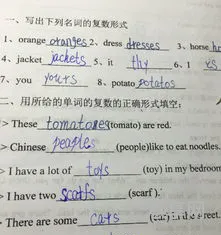 一、写出下列名词的复数形式
1、orange oranges 2、dress dresses 3、horse
4、jacket jackets 5、it thy 6、1 rs
7、you yours 8、potato potatos
二、用所给的单词的复数的正确形式填空:
> These tomatones(tomato) are red.
> Chinese peaples (people)like to eat noodles.
> I have a lot of toys (toy) in my bedroom
> I have two scatfs (scarf).
> There are some cats (cat) in the street.